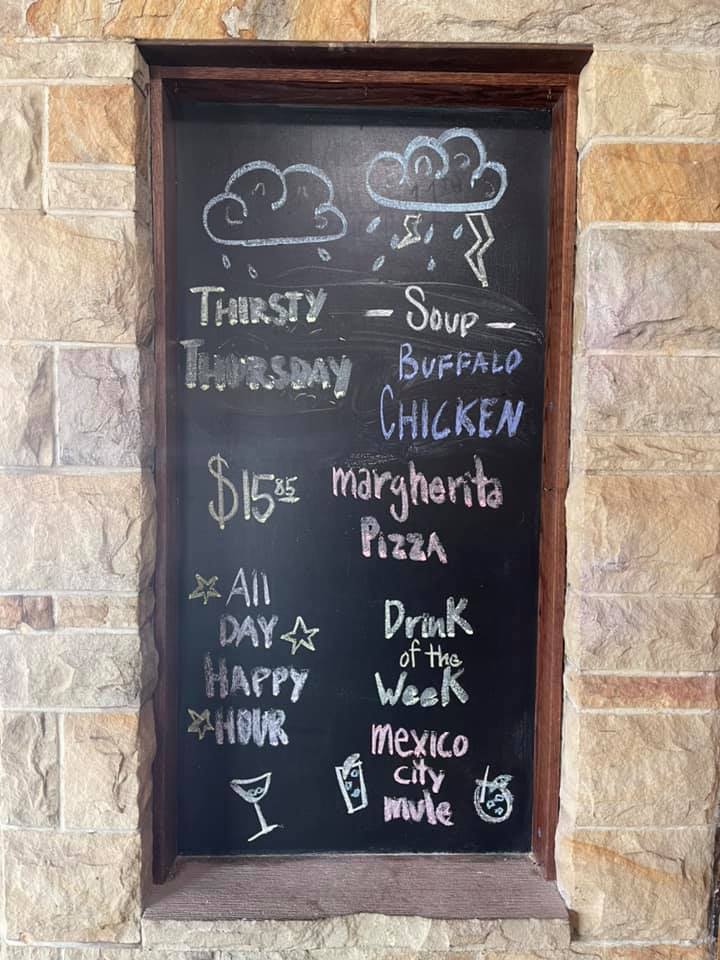 THIRSTY
THURSDAY
- SOUP -
BUFFALO
CHICKEN
$15.85 margherita
PIZZA
All
DAY
HAPPY
HOUR
Drink
of the
Week
mexico
city
mule